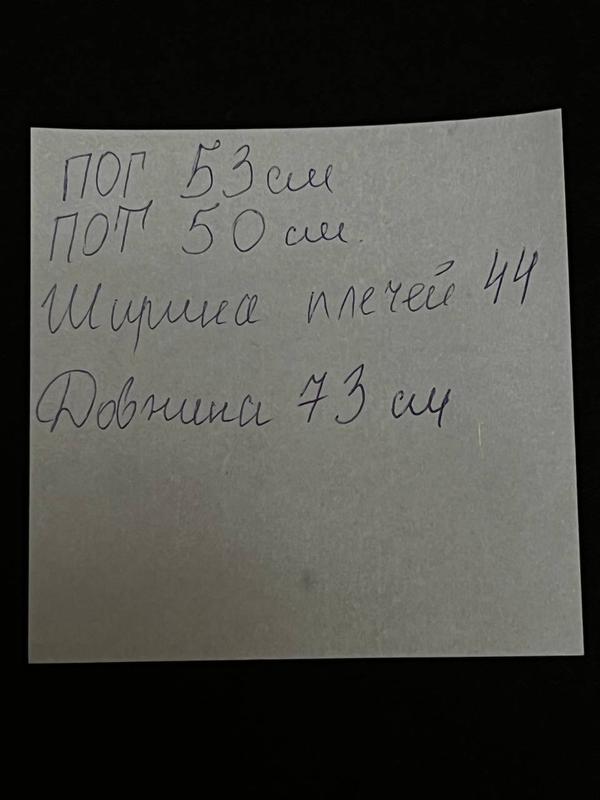 ПОГ 53 см
ПОТ 50 см.
Ширина плечей 44
Довжина 73 см